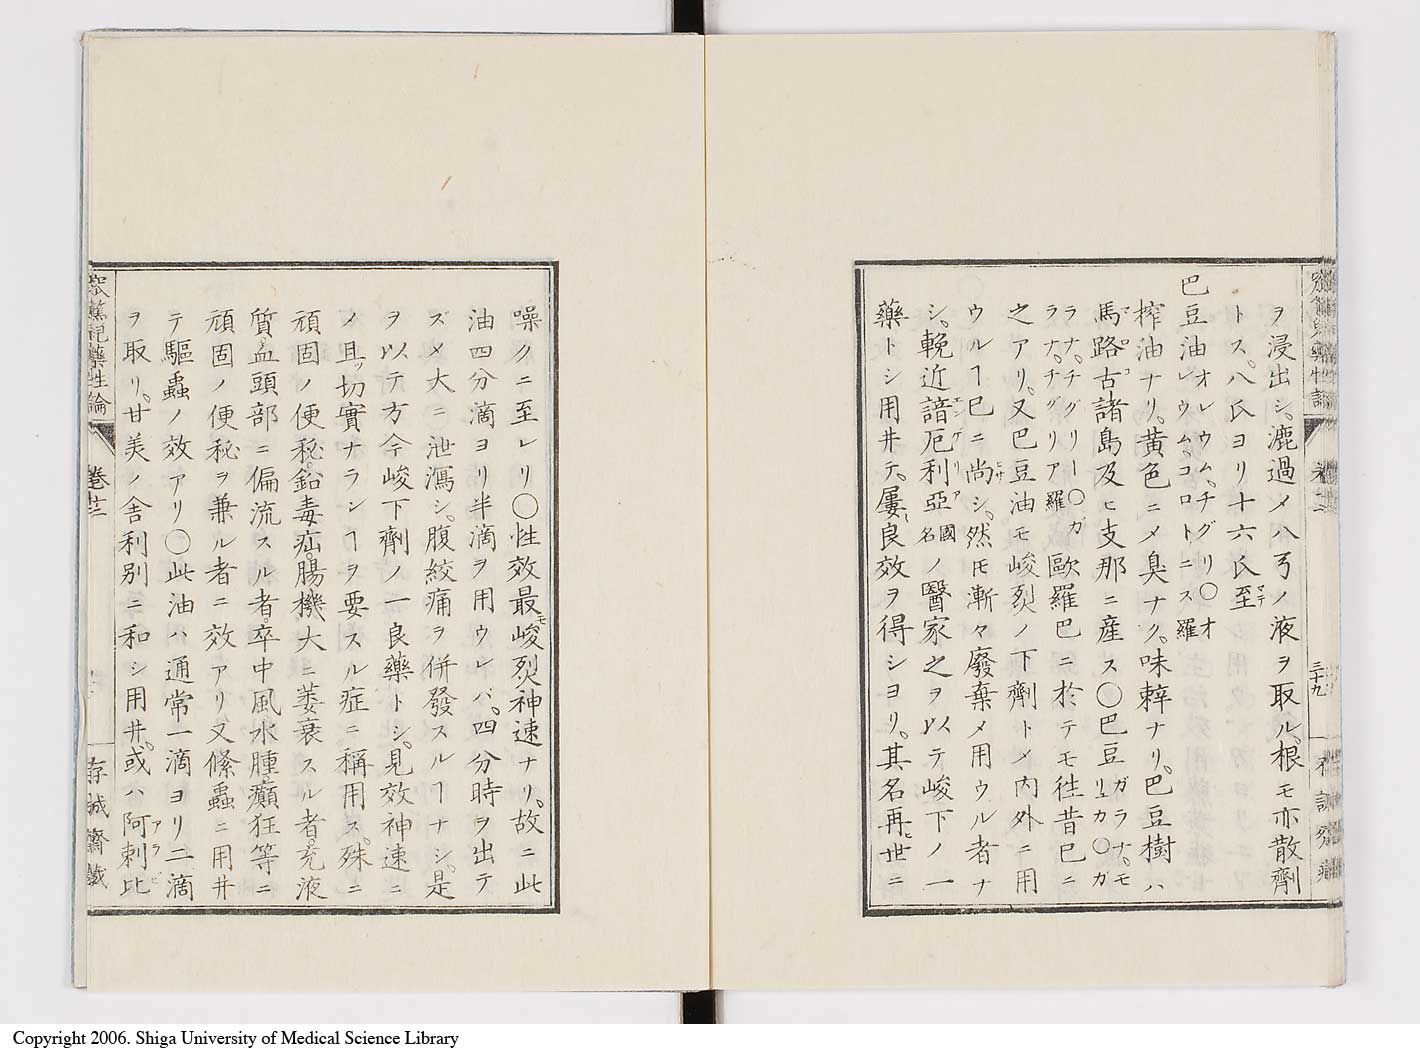 ヲ浸出シ。漉過メ八弓ノ液ヲ取ル。根モ亦散劑
トス。八氏ヨリ十六氏至マデ
巴豆油オレウム。チグリ〇オレウム。コロトニス羅
榨油ナリ。黄色ニメ臭ナク。味辣ナリ。巴豆樹ハ
馬路古マロコ諸島及ヒ支那ニ産ス〇巴豆ガラナ。モリュカ〇ガ
ラナ。チグリー〇ガラナ。チグリア羅歐羅巴ニ於テモ徃昔巳ニ
之アリ。又巴豆油モ峻烈ノ下劑トメ内外ニ用
ウルヿ巳ニ尚ヒサシ。然𪜈漸々廢棄メ用ウル者ナ
シ。輓近諳厄利亞エンゲリア國名ノ醫家之ヲ以テ峻下ノ一
藥トシ用井テ。屢良效ヲ得シヨリ。其名再ヒ世ニ
三十九
噪クニ至レリ〇性效最モ峻烈神速ナリ。故ニ此
油四分滴ヨリ半滴ヲ用ウレバ。四分時ヲ出テ
ズメ大ニ泄瀉シ。腹絞痛ヲ併發スルヿナシ。是
ヲ以テ方今峻下劑ノ一良藥トシ。見效神速ニ
ノ且ッ切實ナランヿヲ要スル症ニ稱用ス。殊ニ
頑固ノ便秘。鉛毒疝。腸機大ニ萎衰スル者。充液
質。血頭部ニ偏流スル者。卒中風水腫。癲狂等ニ
頑固ノ便秘ヲ兼ル者ニ效アリ又絛蟲ニ用井
テ驅蟲ノ效アリ〇此油ハ通常一滴ヨリ二滴
ヲ取リ。甘美ノ舎利別ニ和シ用井。或ハ阿剌比アラビ
藥性論
卷廿二
存誠齋藏
Copyright 2006. Shiga University of Medical Science Library